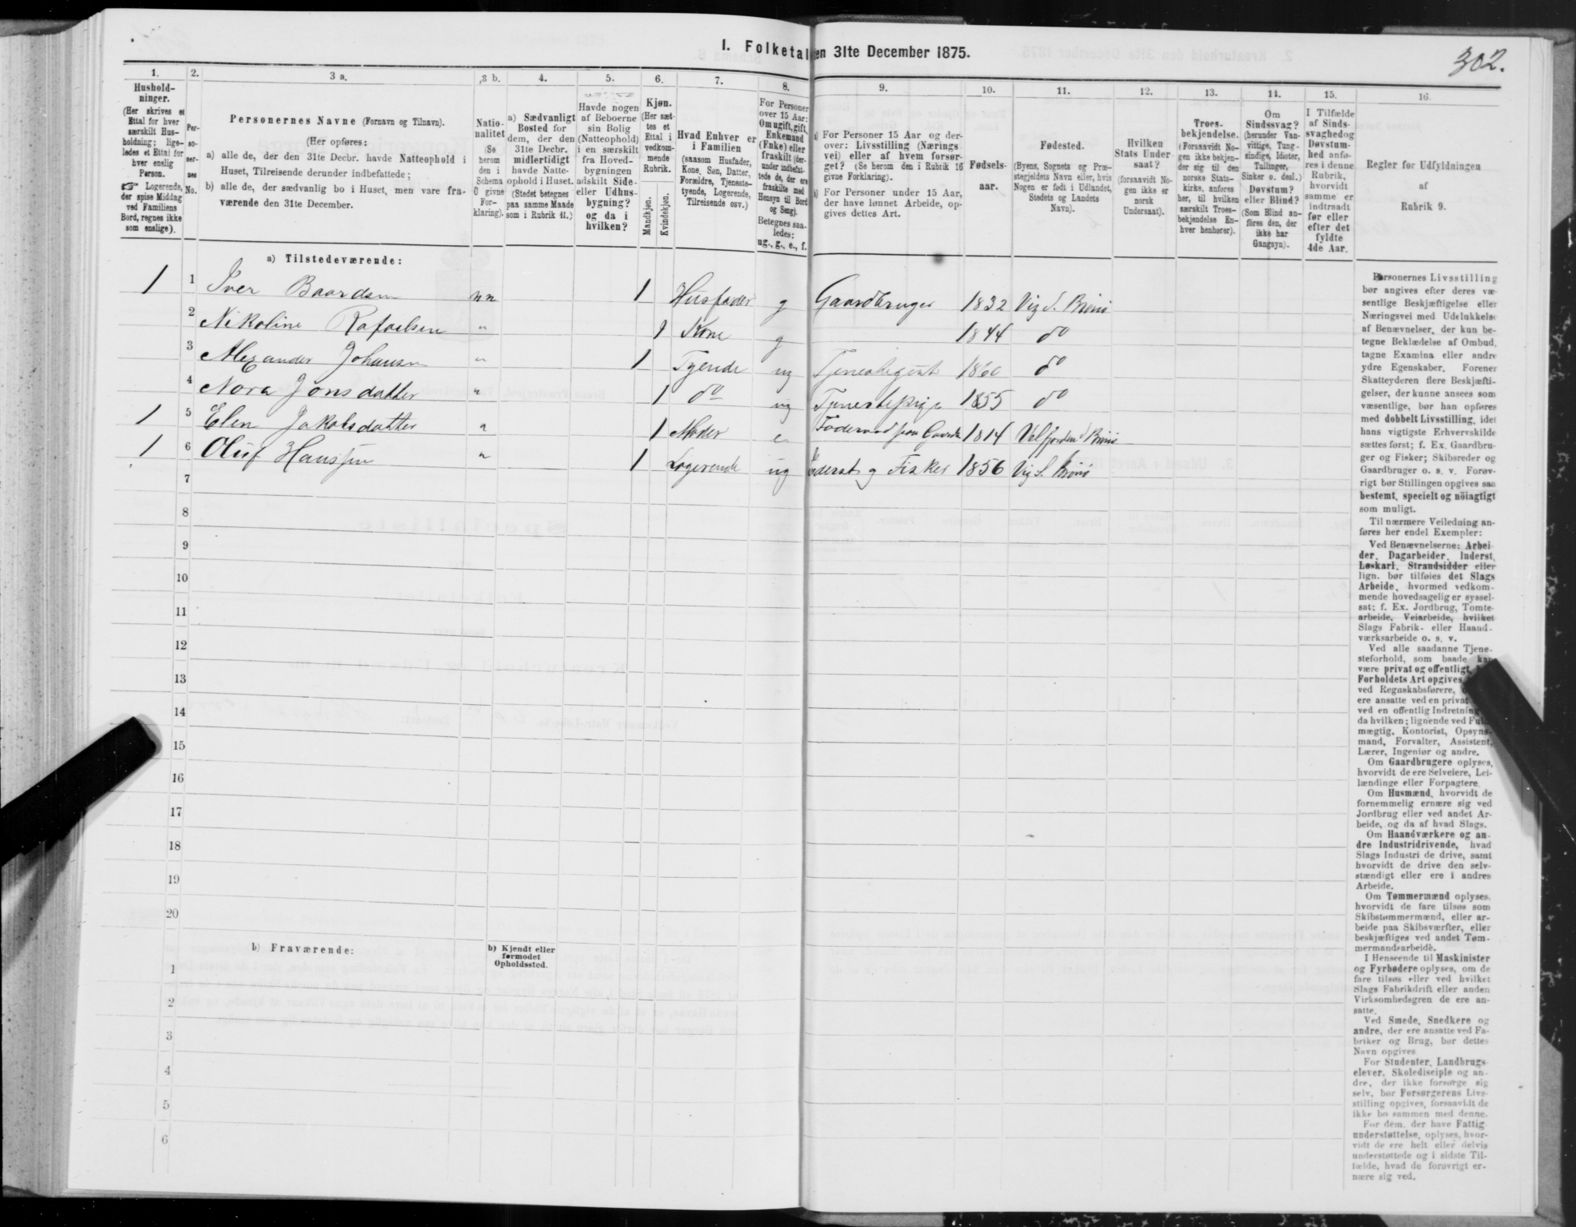 I. Folketal den 31te December 1875.
302.
1.
2.
3 a.
3 b.
4.
5.
6.
7.
8.
9.
10.
11.
12.
13.
14.
15.
16.
Hushold-
ninger.
(Her skrives et
Ettal for hver
særskilt Hus-
holdning; lige-
ledes et Ettal for
hver enslig
Person.
☞ Logerende,
der spise Middag
ved Familiens
Bord, regnes ikke
som enslige).
Per-
so-
ner-
nes
No.
Personernes Navne (Fornavn og Tilnavn).
(Her opføres:
a) alle de, der den 31te Decbr. havde Natteophold i
Huset, Tilreisende derunder indbefattede;
b) alle de, der sædvanlig bo i Huset, men vare fra-
værende den 31te December.
Natio-
nalitet
(Se
herom
den i
Schema
6 givne
For-
klaring).
a) Sædvanligt
Bosted for
dem, der den
31te Decbr.
midlertidigt
havde Natte-
ophold i Huset.
(Stedet betegnes
paa samme Maade
som i Rubrik 11.)
Havde nogen
af Beboerne
sin Bolig
(Natteophold)
i en særskilt
fra Hoved-
bygningen
adskilt Side-
eller Udhus-
bygning?
og da i
hvilken?
Kjøn.
(Her sæt-
tes et
Ettal i
vedkom-
mende
Rubrik.
Mandkjøn.
Kvindekjøn.
Hvad Enhver er
i Familien
(saasom Husfader,
Kone, Søn, Datter,
Forældre, Tjeneste-
tyende, Logerende,
Tilreisende osv.)
For Personer
over 15 Aar:
Om ugift, gift,
Enkemand
(Enke) eller
fraskilt (der-
under indbefat-
tede de, der ere
fraskilte med
Hensyn til Bord
og Seng).
Betegnes saa-
ledes:
ug., g., e., f.
a) For Personer 15 Aar og der-
over: Livsstilling (Nærings-
vei) eller af hvem forsør-
get? (Se herom den i Rubrik 16
givne Forklaring).
b) For Personer under 15 Aar,
der have lønnet Arbeide, op-
gives dettes Art.
Fødsels-
aar.
Fødested.
(Byens, Sognets og Præ-
stegjeldets Navn eller, hvis
Nogen er født i Udlandet,
Stedets og Landets
Navn).
Hvilken
Stats Under-
saat?
(forsaavidt No-
gen ikke er
norsk
Undersaat).
Troes-
bekjendelse.
(Forsaavidt No-
gen ikke bekjen-
der sig til den
norske Stats-
kirke, anføres
her, til hvilken
særskilt Troes-
bekjendelse En-
hver henhører).
Om
Sindssvag?
(herunder Van-
vittige, Tung-
sindige, Idioter,
Tullinger,
Sinker o. desl.)
Døvstum?
eller Blind?
(Som Blind an-
føres den, der
ikke har
Gangsyn).
I Tilfælde
af Sinds-
svaghed og
Døvstum-
hed anfø-
res i denne
Rubrik,
hvorvidt
samme er
indtraadt
før eller
efter det
fyldte
4de Aar.
Regler for Udfyldningen
af
Rubrik 9.
a) Tilstedeværende:
1 1 Iver Baardsen nn 1 Husfader g Gaardbruger 1832 Vig S. Brønø
2 Nikoline Rafaelsen " 1 Kone g 1844 do
3 Alexander Johansen " 1 Tyende ug Tjenestegut 1860 do
4 Nora Jonsdatter " 1 do ug Tjenestepige 1855 do
1 5 Elen Jakobsdatter " 1 Moder e Føderaad paa Gaarden 1814 Velfjorden i Brønø
1 6 Oluf Hanssen " 1 Logerende ug Inderst og Fisker 1856 Vig S. Brønø
7
8
9
10
11
12
13
14
15
16
17
18
19
20
b) Fraværende:
b) Kjendt eller
formodet
Opholdssted.
1
2
3
4
5
6
Personernes Livsstilling
bør angives efter deres væ-
sentlige Beskjæftigelse eller
Næringsvei med Udelukkelse
af Benævnelser, der kun be-
tegne Beklædelse af Ombud,
tagne Examina eller andre
ydre Egenskaber. Forener
Skatteyderen flere Beskjæfti-
gelser, der kunne ansees som
væsentlige, bør han opføres
med dobbelt Livsstilling, idet
hans vigtigste Erhvervskilde
sættes først; f. Ex. Gaardbru-
ger og Fisker; Skibsreder og
Gaardbruger o. s. v. Forøv-
rigt bør Stillingen opgives saa
bestemt, specielt og nöiagtigt
som muligt.
Til nærmere Veiledning an-
føres her endel Exempler:
Ved Benævnelserne: Arbei-
der, Dagarbeider, Inderst,
Løskarl, Strandsidder eller
lign. bør tilføies det Slags
Arbeide, hvormed vedkom-
mende hovedsagelig er syssel-
sat; f. Ex. Jordbrug, Tomte-
arbeide, Veiarbeide, hvilket
Slags Fabrik- eller Haand-
værksarbeide o. s. v.
Ved alle saadanne Tjene-
steforhold, som baade kan
være privat og offentligt,
Forholdets Art opgives,
ved Regnskabsførere,
ere ansatte ved en privat
ved en offentlig Indretning
da hvilken; lignende ved Fuld-
mægtig, Kontorist, Opsyns-
mand, Forvalter, Assistent,
Lærer, Ingeniør og andre.
Om Gaardbrugere oplyses,
hvorvidt de ere Selveiere, Lei-
lændinge eller Forpagtere.
Om Husmænd, hvorvidt de
fornemmelig ernære sig ved
Jordbrug eller ved andet Ar-
beide, og da af hvad Slags.
Om Haandværkere og an-
dre Industridrivende, hvad
Slags Industri de drive, samt
hvorvidt de drive den selv-
stændigt eller ere i andres
Arbeide.
Om Tømmermænd oplyses,
hvorvidt de fare tilsøs som
Skibstømmermænd, eller ar-
beide paa Skibsværfter, eller
beskjæftiges ved andet Tøm-
mermandsarbeide.
I Henseende til Maskinister
og Fyrbødere oplyses, om de
fare tilsøs eller ved hvilket
Slags Fabrikdrift eller anden
Virksomhedsgren de ere an-
satte.
Ved Smede, Snedkere og
andre, der ere ansatte ved Fa-
briker og Brug, bør dettes
Navn opgives.
For Studenter, Landbrugs-
elever, Skoledisciple og an-
dre, der ikke forsørge sig
selv, bør Forsørgerens Livs-
stilling opgives, forsaavidt de
ikke bo sammen med denne.
For dem, der have Fattig-
understøttelse, oplyses, hvor-
vidt de ere helt eller delvis
understøttede og i sidste Til-
fælde, hvad de forøvrigt er-
nære sig ved.